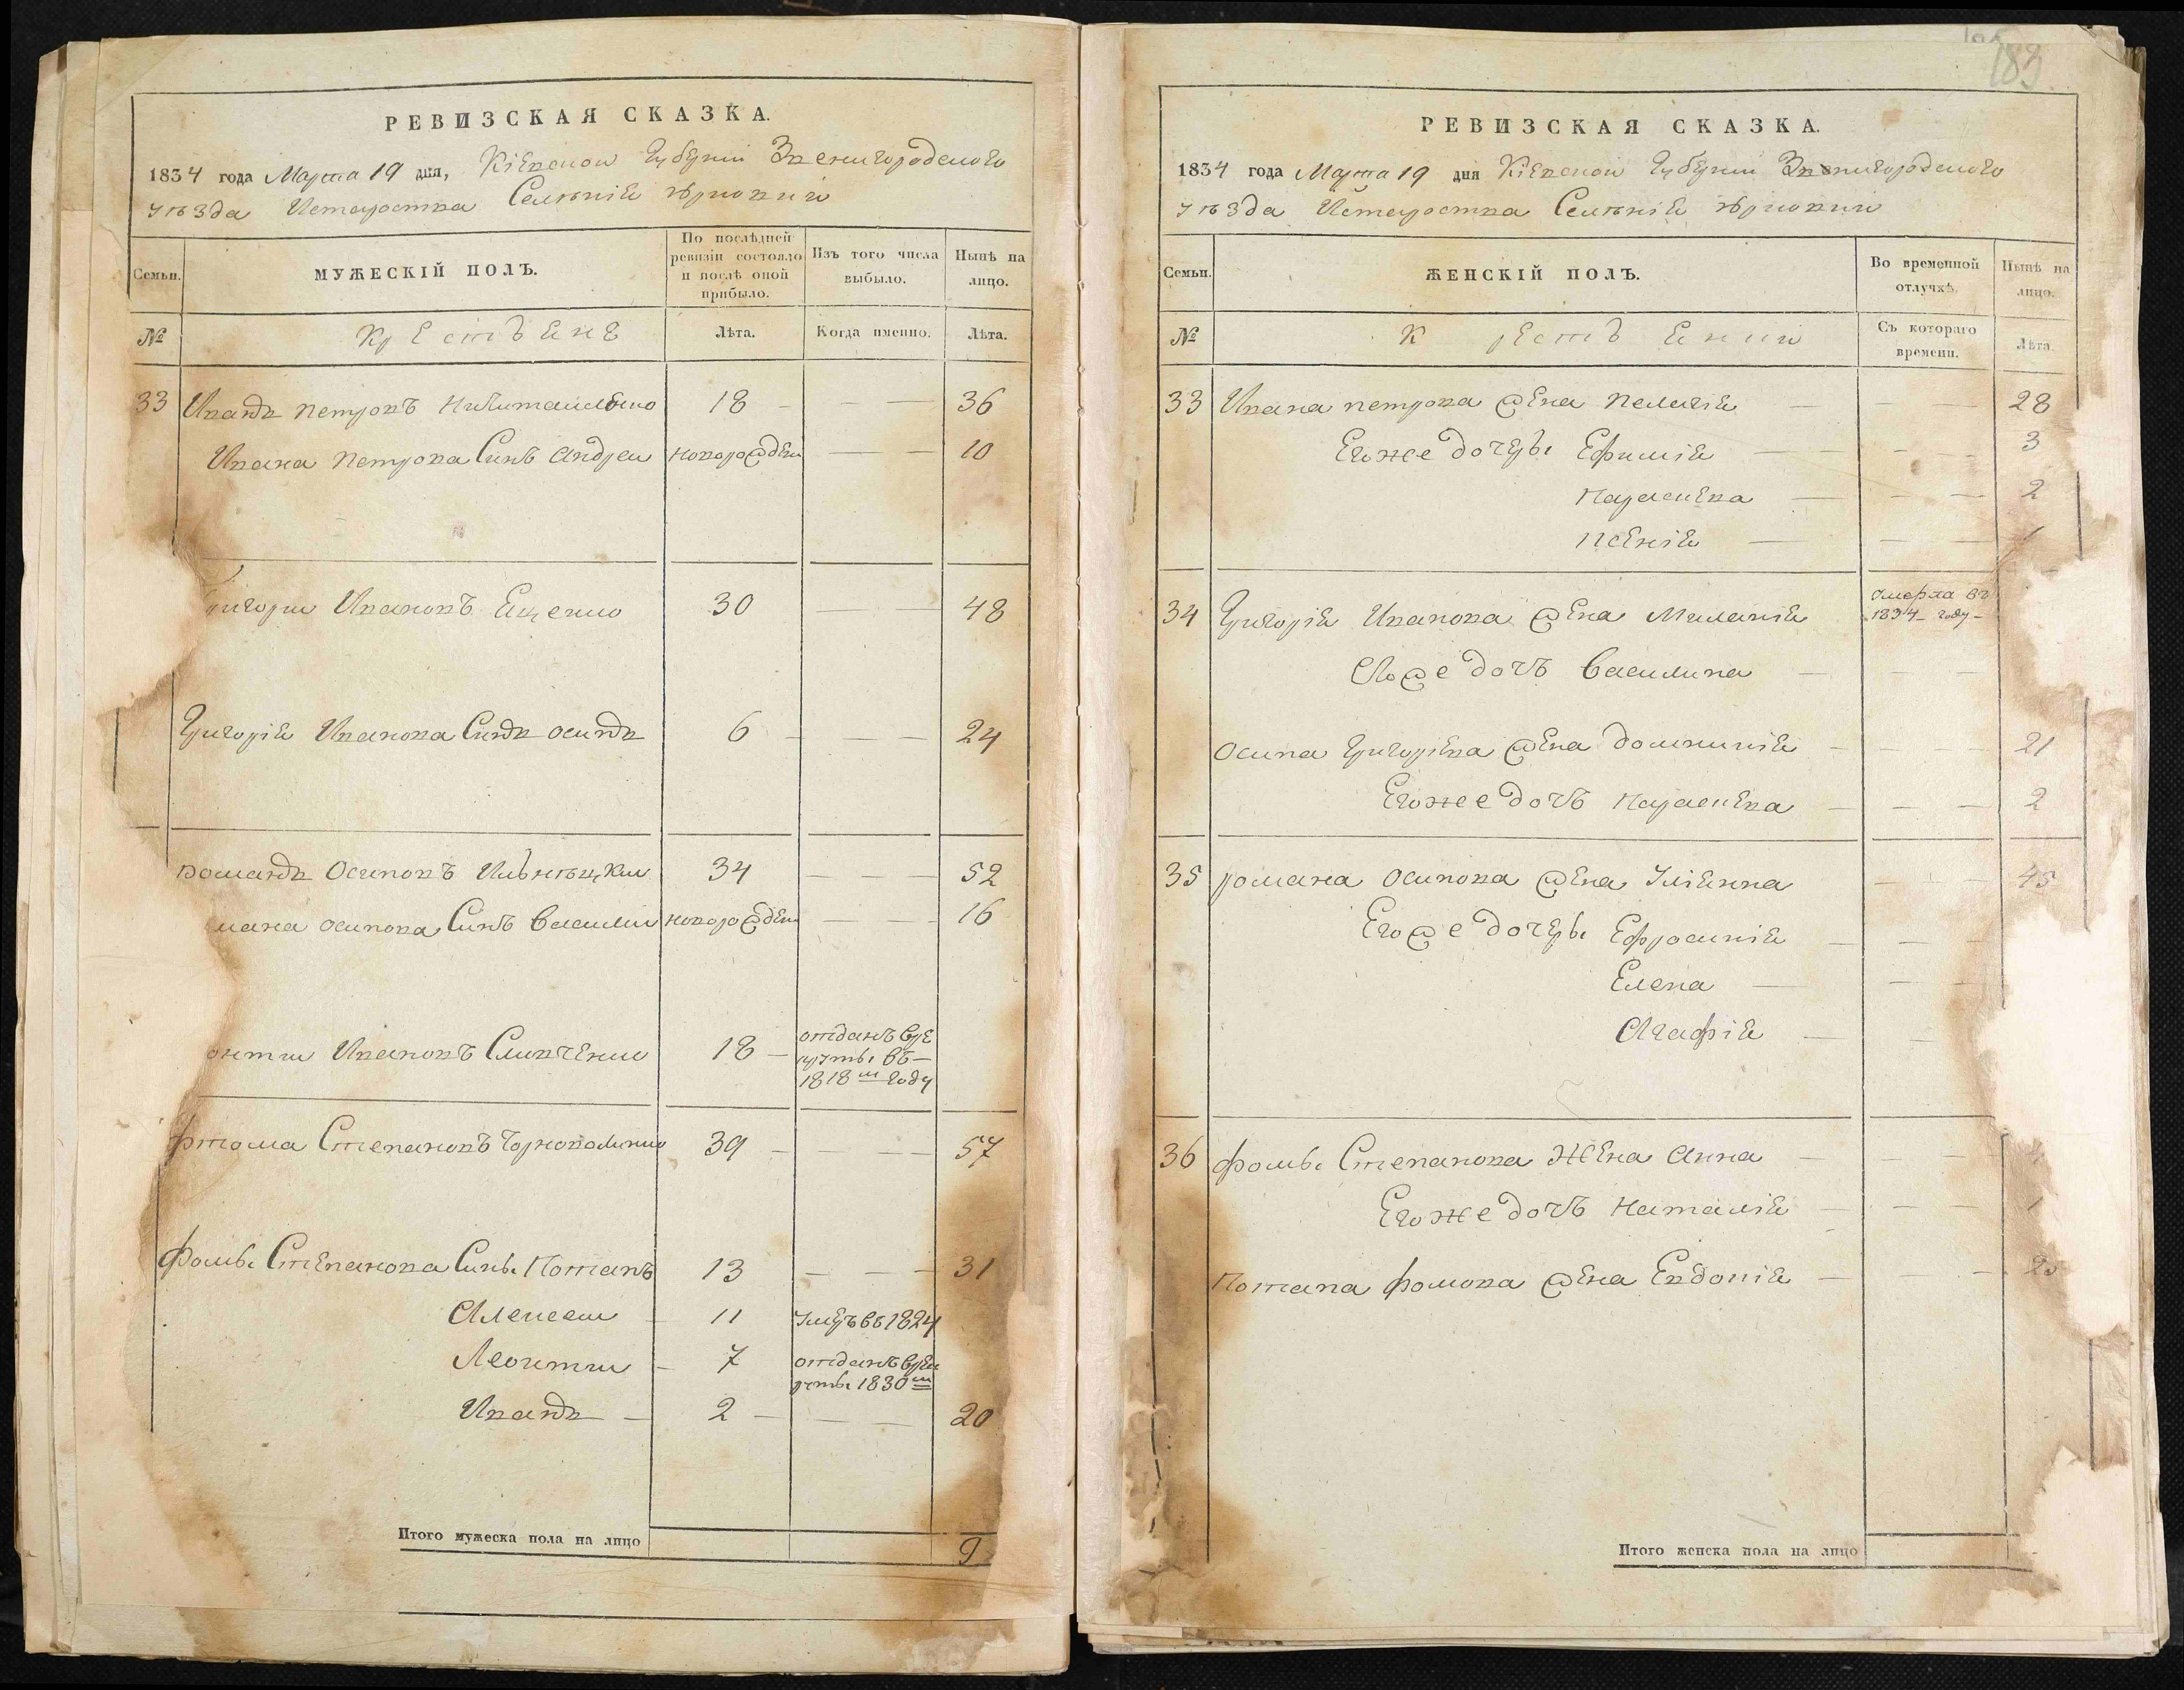 РЕВИЗСКАЯ СКАЗКА.
1834 года Марта 19 дня, Кіевской Губерніи Звенигородского
уѣзда Селѣнія
Семьи.
МУЖЕСКІЙ ПОЛЪ.
По послѣдней ревизіи состояло и послѣ оной прибыло.
Изъ того числа выбыло.
Нынѣ на лицо.
№
Крестьене
Лѣта.
Когда именно.
Лѣта.
33 Иванъ Петровъ 18 — — 36
Ивана Петрова Синъ Андреи новорожден — — 10
ригори Ивановъ Ещенко 30 — 48
Григорія Иванова Синъ осипъ 6 — — — 24
романъ Осиповъ 34 — — — 52
мана осипова Синъ Василии новорожден — — 16
онтии Ивановъ Сливченко 18 — отданъ в ре
круты въ —
1818 м году
фтома Степановъ 39 — — — — 57
фомы Степанова Сины Потапъ 13 — — — 31
Алексеи 11 умеръ въ 1824
Леонтии — 7 отданъ в рек
руты 1830 м
Иванъ — 2 — — — 20
Итого мужеска пола на лицо 9
183
РЕВИЗСКАЯ СКАЗКА.
1834 года Марта 19 дня Кіевской Губерніи Звенигородского
уѣзда Селѣнія
Семьи.
ЖЕНСКІЙ ПОЛЪ.
Во временной отлучкѣ.
Нынѣ на лицо.
№
Крестьенки
Съ котораго времени.
Лѣта.
33 Ивана петрова жена пелагія — — — 28
Егоже дочеры Ефимія — — — 3
Параскева — — — 2
Ксенія — — — 1
34 Григорія Иванова жена Миланія умерла въ
1834 — году —
Егоже дочъ Василина — — —
Осипа Григоріева жена домникія — — — — 21
Егоже дочъ Параскева — — — 2
35 романа осипова жена Уліянна — — 45
Егоже дочеры Ефросинія — — —
Елена — — —
Агафія — —
36 фомы Степанова жена Анна — — — —
Егоже дочъ Наталія — — — —
Потапа фомова жена Евдокія — — —
Итого женска пола на лицо